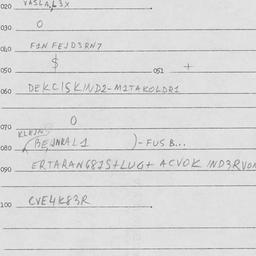 020 VASLA,L3X
030 O
040 F1NFEJD3RN7
050 $ 051 +
060 DEKCISKIND2-M1TAKOLDR1
070 O
KLEINS
080 (BEJNRAL1 )-FUSB...
090 ERTARANG8JS+LUG+ACVOK IND3RVON
100 CVE4K83R